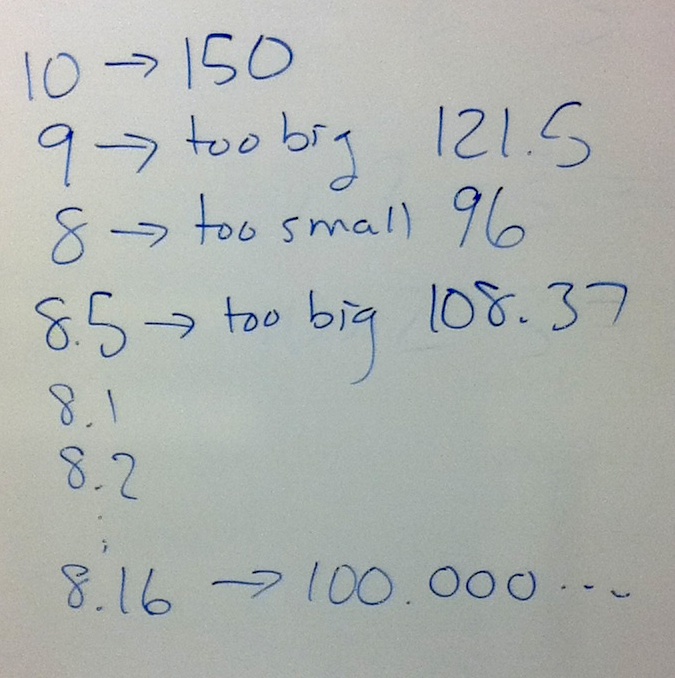 10 → 150
9 → too big 121.5
8 → too small 96
8.5 → too big 108.37
8.1
8.2
⋮
8.16 → 100.000...